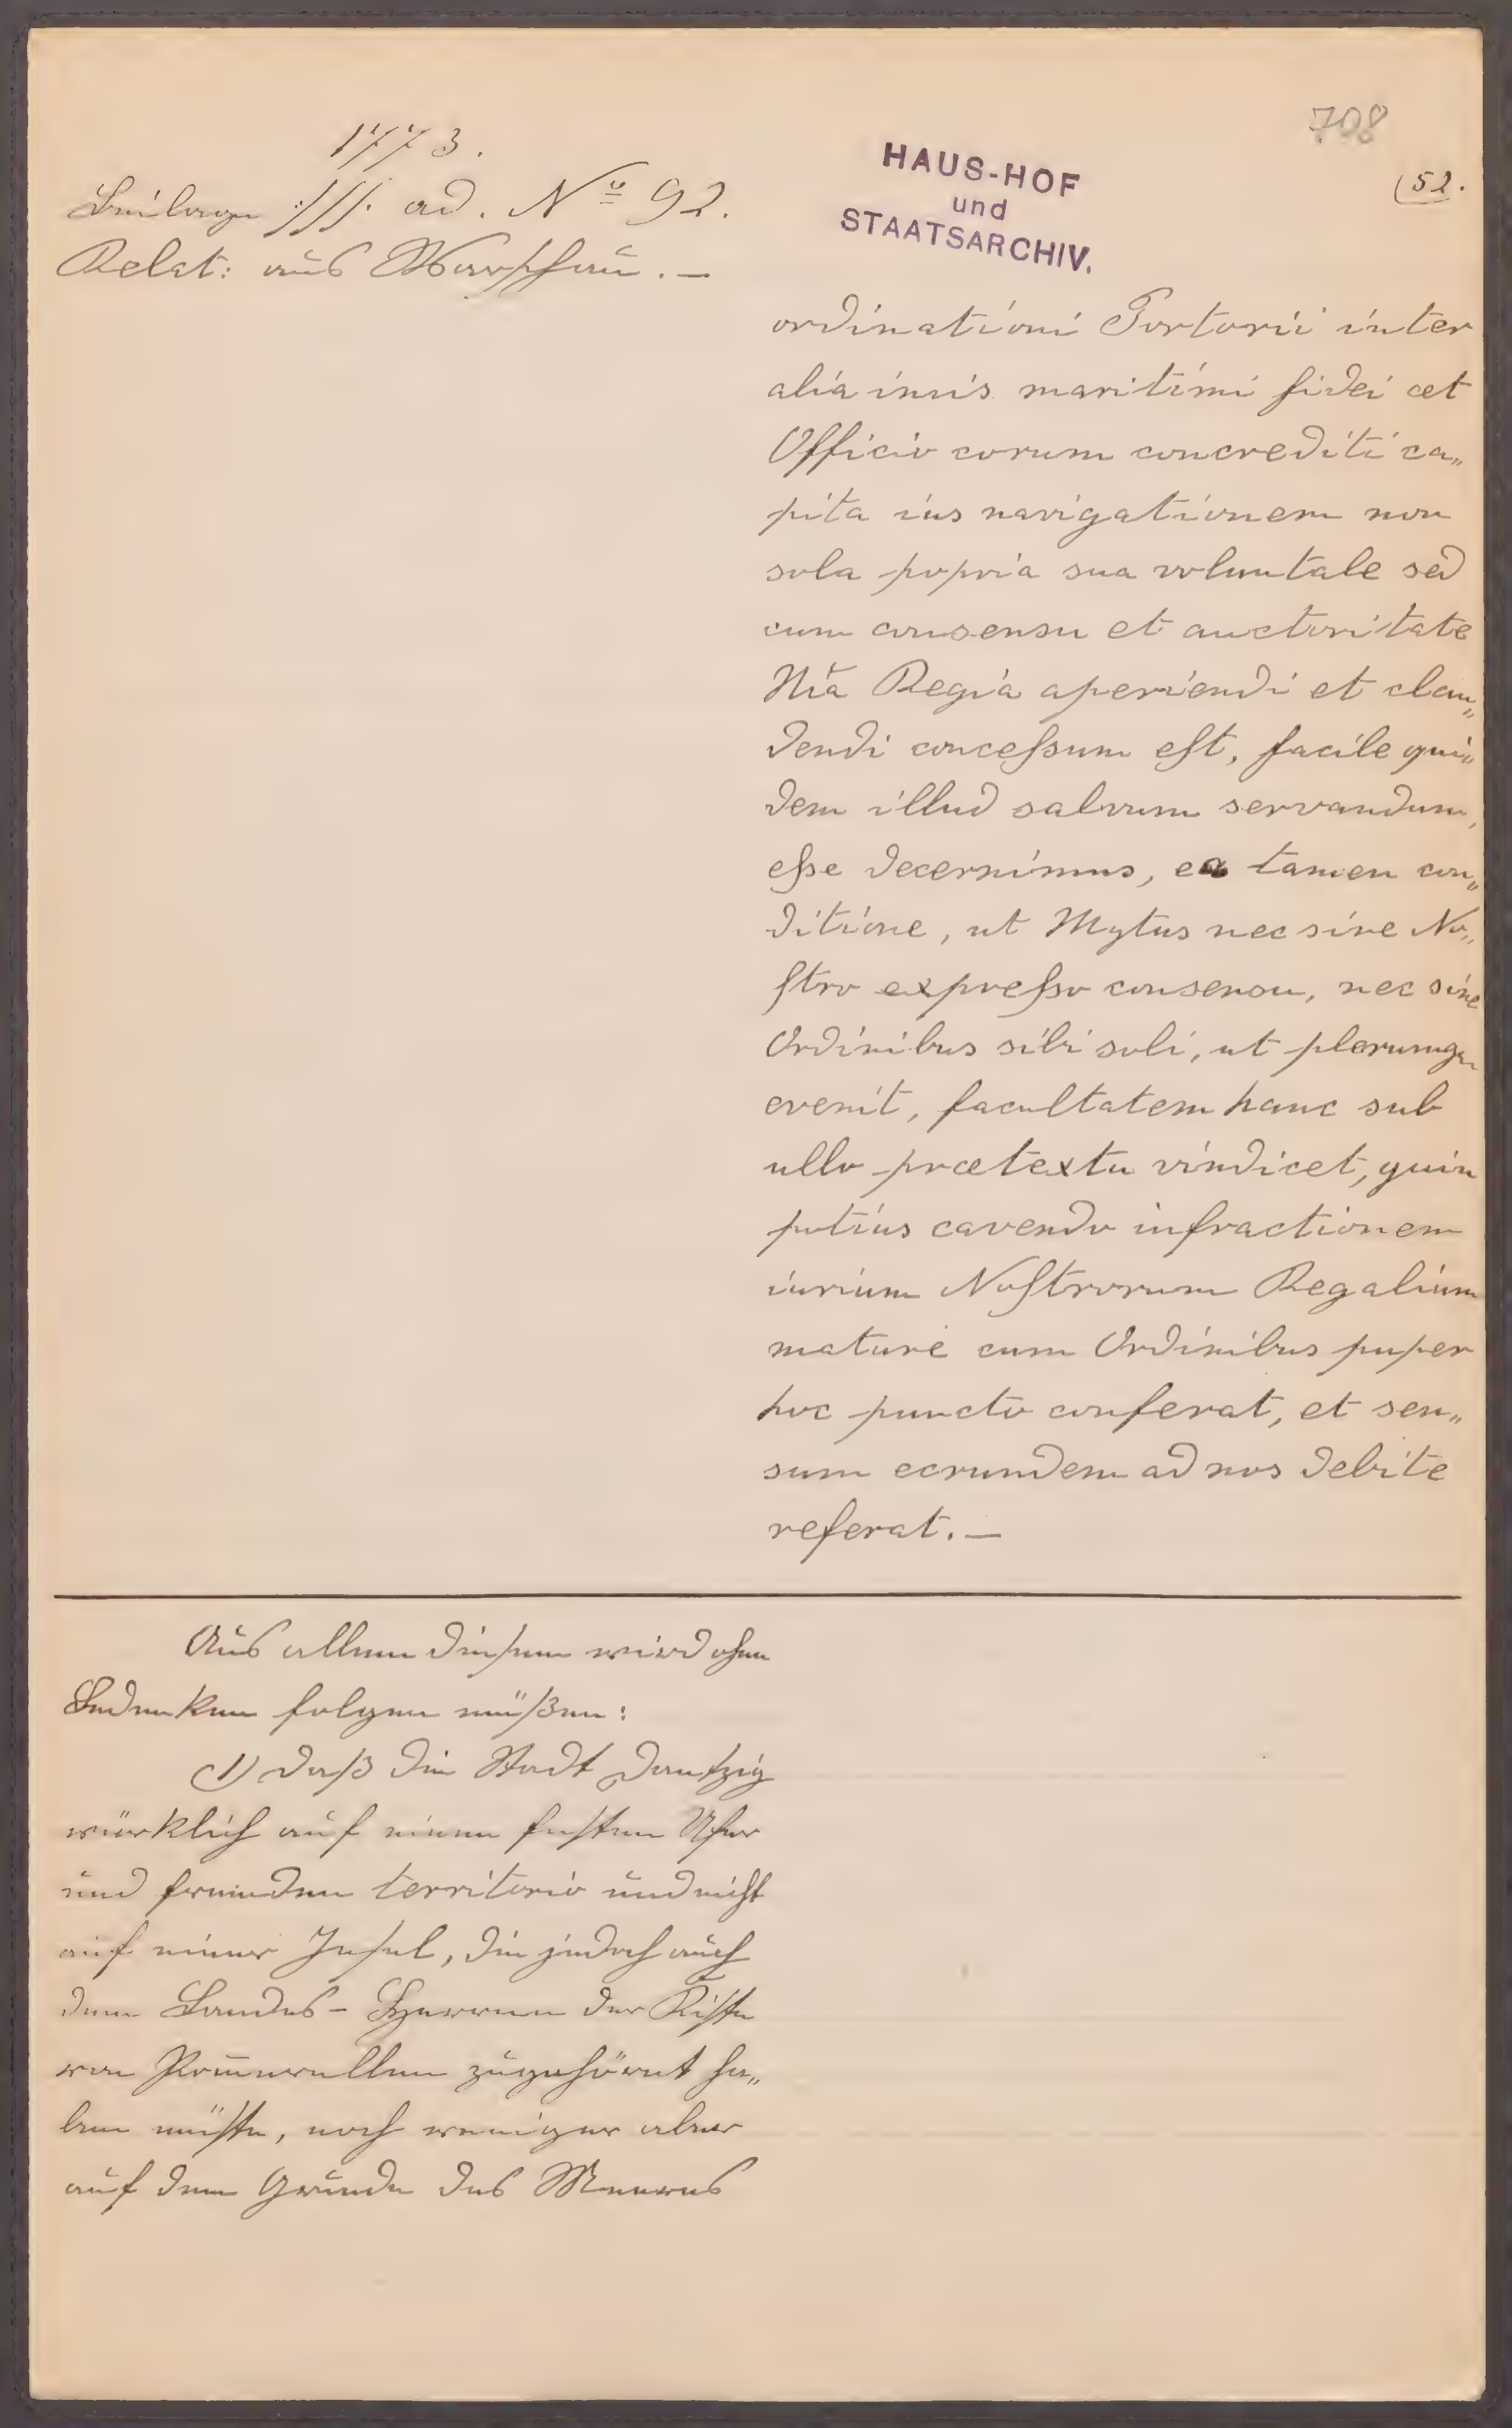 708
(52.
1773.
Beilage ://: ad. Nº 92.
Relat: aus Warschau. —
HAUS-HOF
und
STAATSARCHIV.
ordinationi Portorii inter
alia iuris maritimi fidei cet
Officio eorum concrediti ca„
pita ius navigationem non
sola propria sua voluntale sed
cum consensu et auctoritate
Nrã Regia aperiendi et clau„
dendi conceſsum eſt, facile qui„
dem illud salvum servandum,
eſse decernimus, ea tamen con„
ditione, ut Mytus nec sine No„
ſtro expreſso consensu, nec sine
Ordinibus sibi soli, ut plerumque
evenit, facultatem hanc sub
ullo prætextu vindicet, quin
potius cavendo infractionem
iurium Noſtrorum Regalium
mature cum Ordinibus puper
hoc puncto conferat, et sen„
sum eorundem ad nos debite
referat. —
Aus allem diesem wird ohne
Bedenken folgen müßen:
1) daß die Stadt Dantzig
würklich auf einem festen Ufer
und fremden territorio und nicht
auf einer Insel, die jedoch auch
dem Landes-Herren der Küste
von Pom̃erellen zugehöret ha„
ben müste, noch weniger aber
auf dem Grunde des Meeres